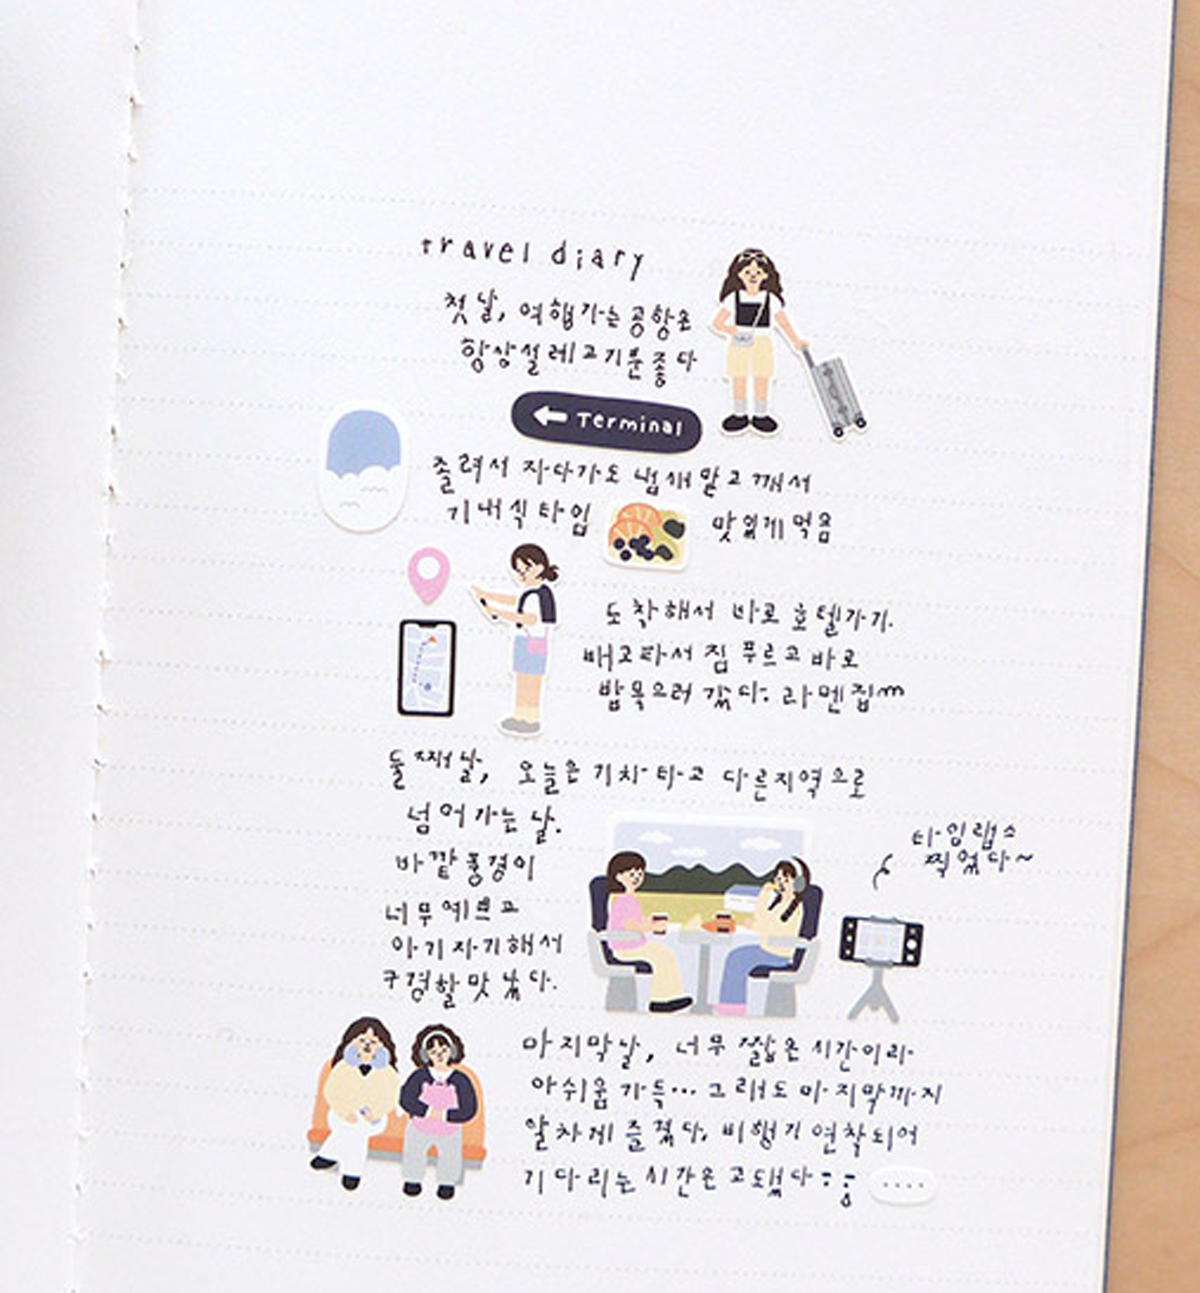 travel diary
첫날, 여행가는 공항은
항상 설레고 기분 좋다
← Terminal
졸려서 자다가도 냄새 맡고 깨서
기내식 타임 맛있게 먹음
도착해서 바로 호텔가기.
배고파서 짐 푸르고 바로
밥 먹으러 갔다. 라멘집
둘째날, 오늘은 기차 타고 다른지역으로
넘어가는 날.
타임랩스
찍었다~
바깥 풍경이
너무 예쁘고
아기자기해서
구경할 맛 났다.
마지막날, 너무 짧은 시간이라
아쉬움 가득... 그래도 마지막까지
알차게 즐겼다. 비행기 연착되어
기다리는 시간은 고됐다
....